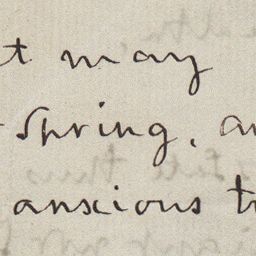 t may
spring, a
anxious t